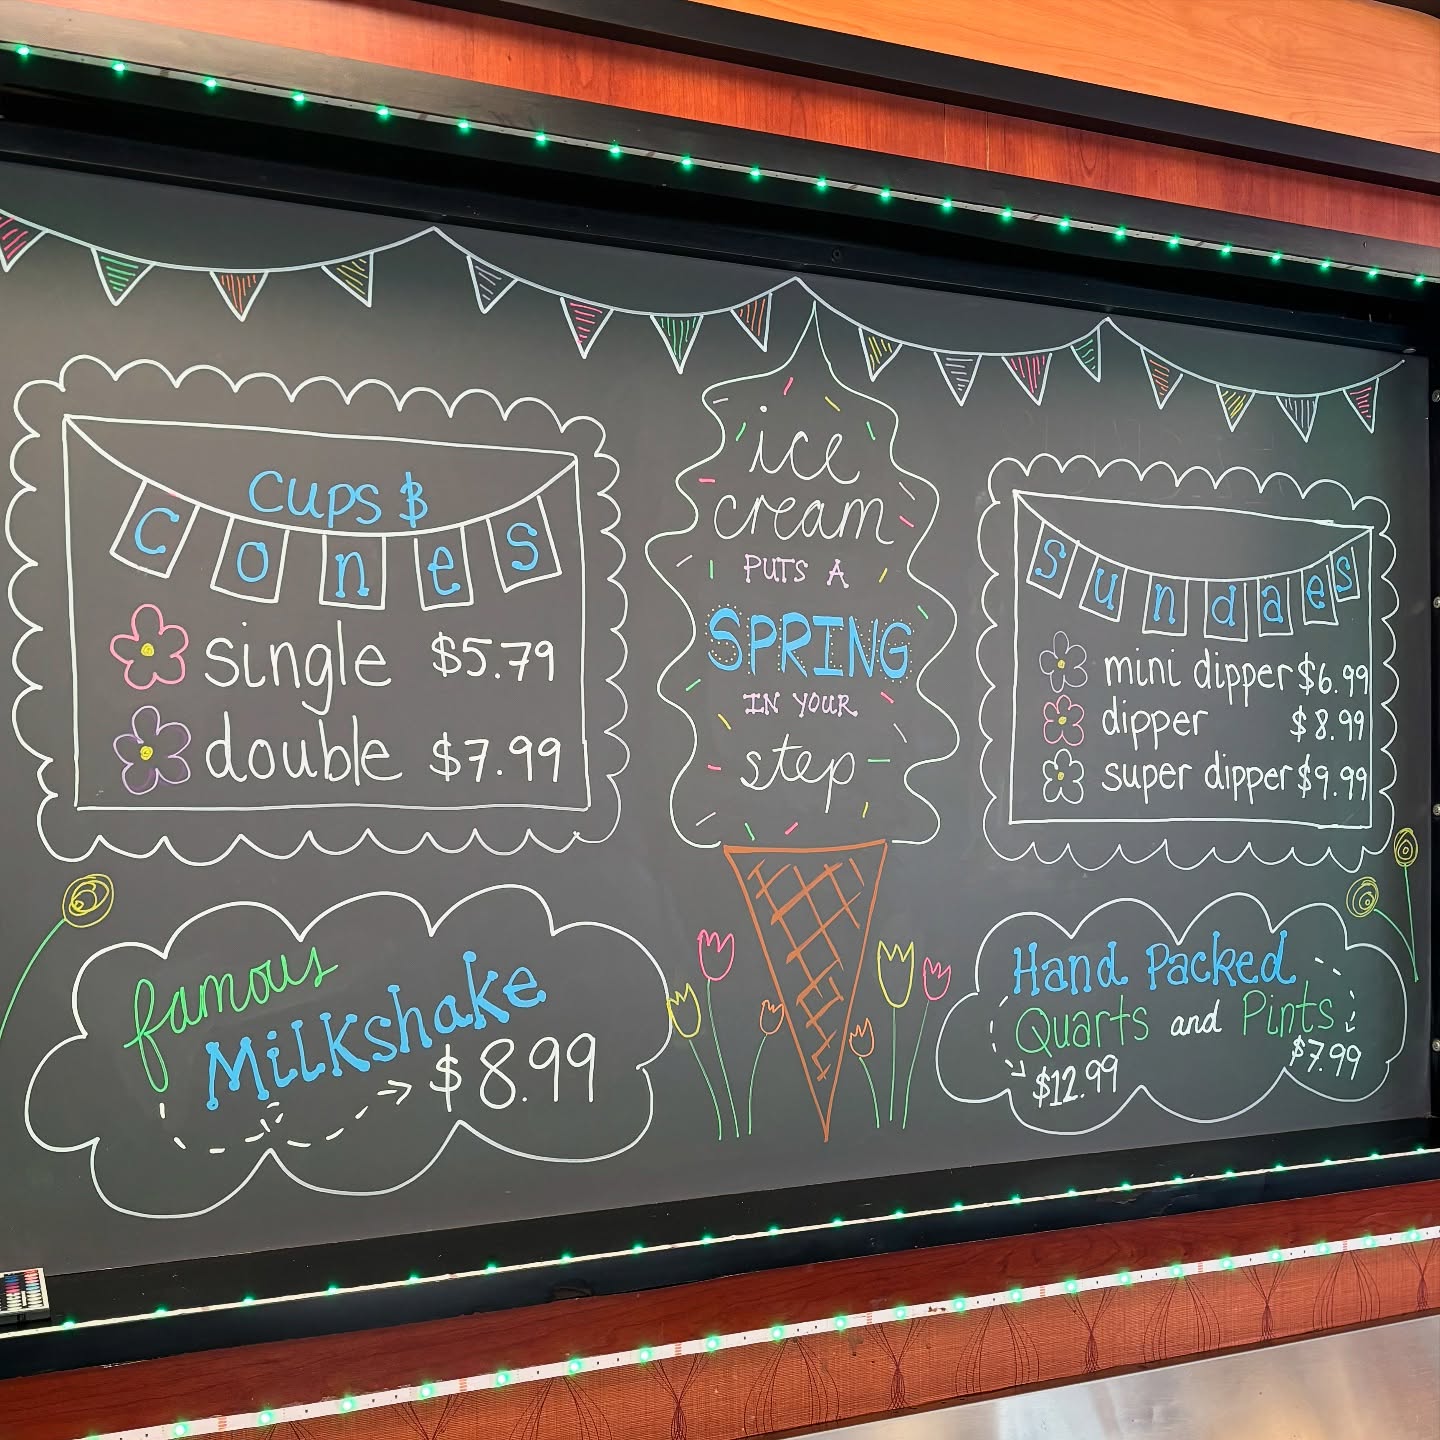 Cups &
Cones
single $5.79
double $7.99
ice
cream
PUTS A
SPRING
IN YOUR
step
Sundaes
mini dipper $6.99
dipper $8.99
super dipper $9.99
famous
Milkshake
$8.99
Hand Packed
Quarts and Pints
$12.99 $7.99